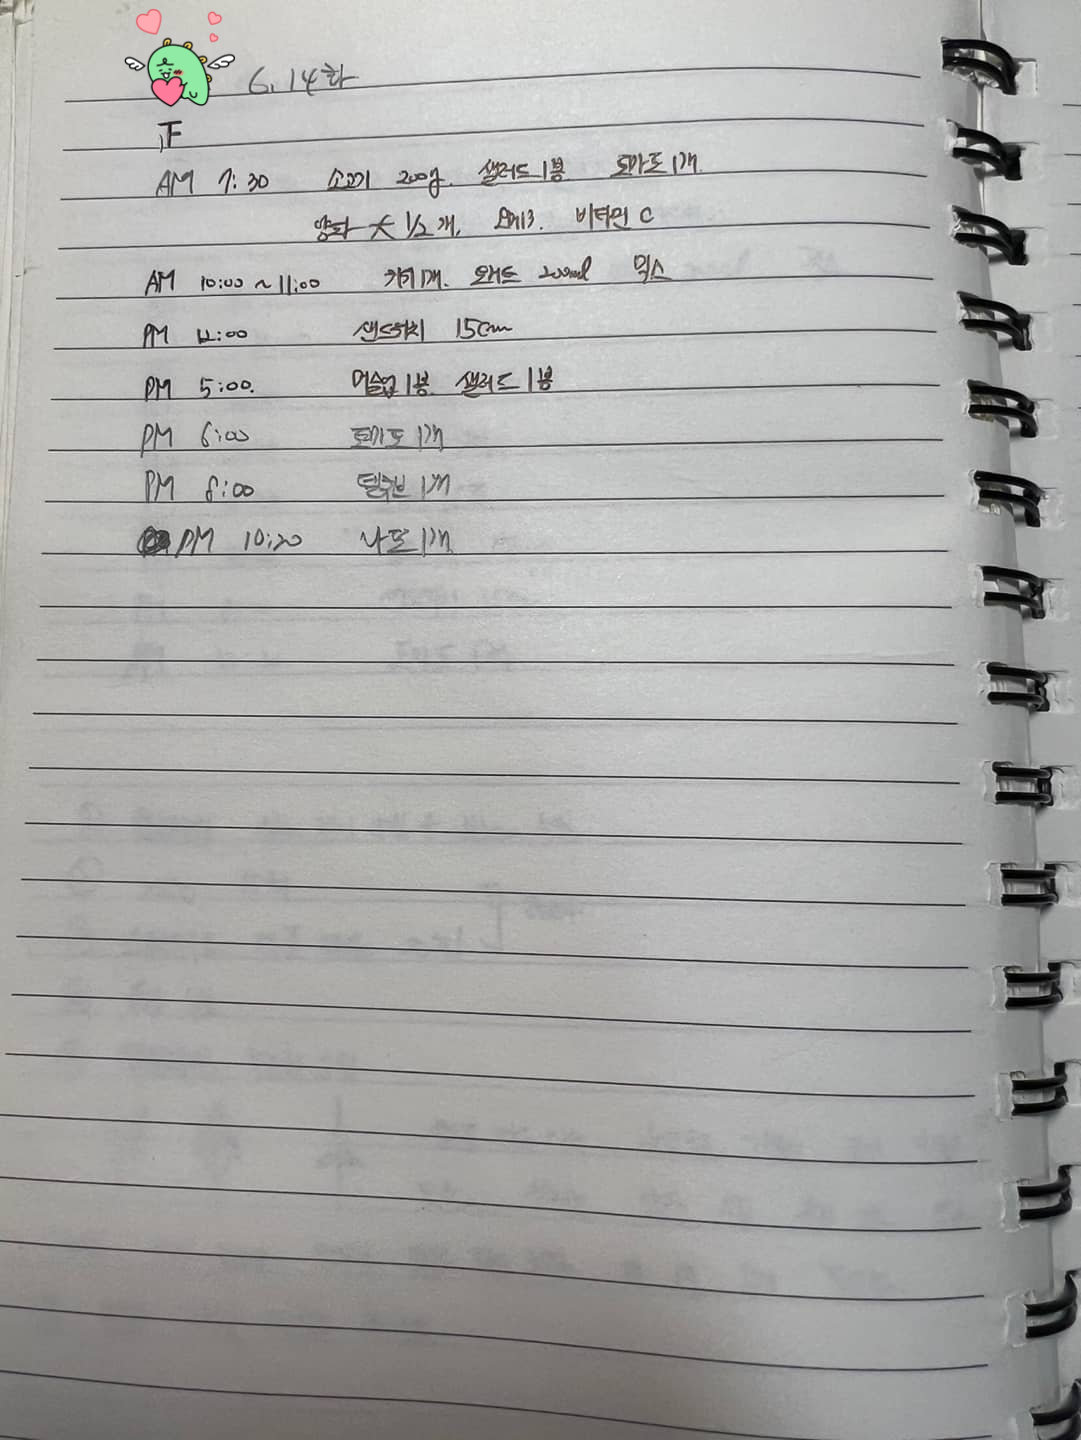 6. 14 화
正
AM 7:30 소고기 200g. 샐러드 1봉 토마토 1개.
양파 大 1/2개, 오메가3. 비타민 C
AM 10:00 ~ 11:00 커피 1개. 200ml 믹스
PM 12:00 샌드위치 15cm
PM 5:00. 머슬업 1봉. 샐러드 1봉
PM 6:00 토마토 1개
PM 8:00 1개
PM 10:20 낫또 1개